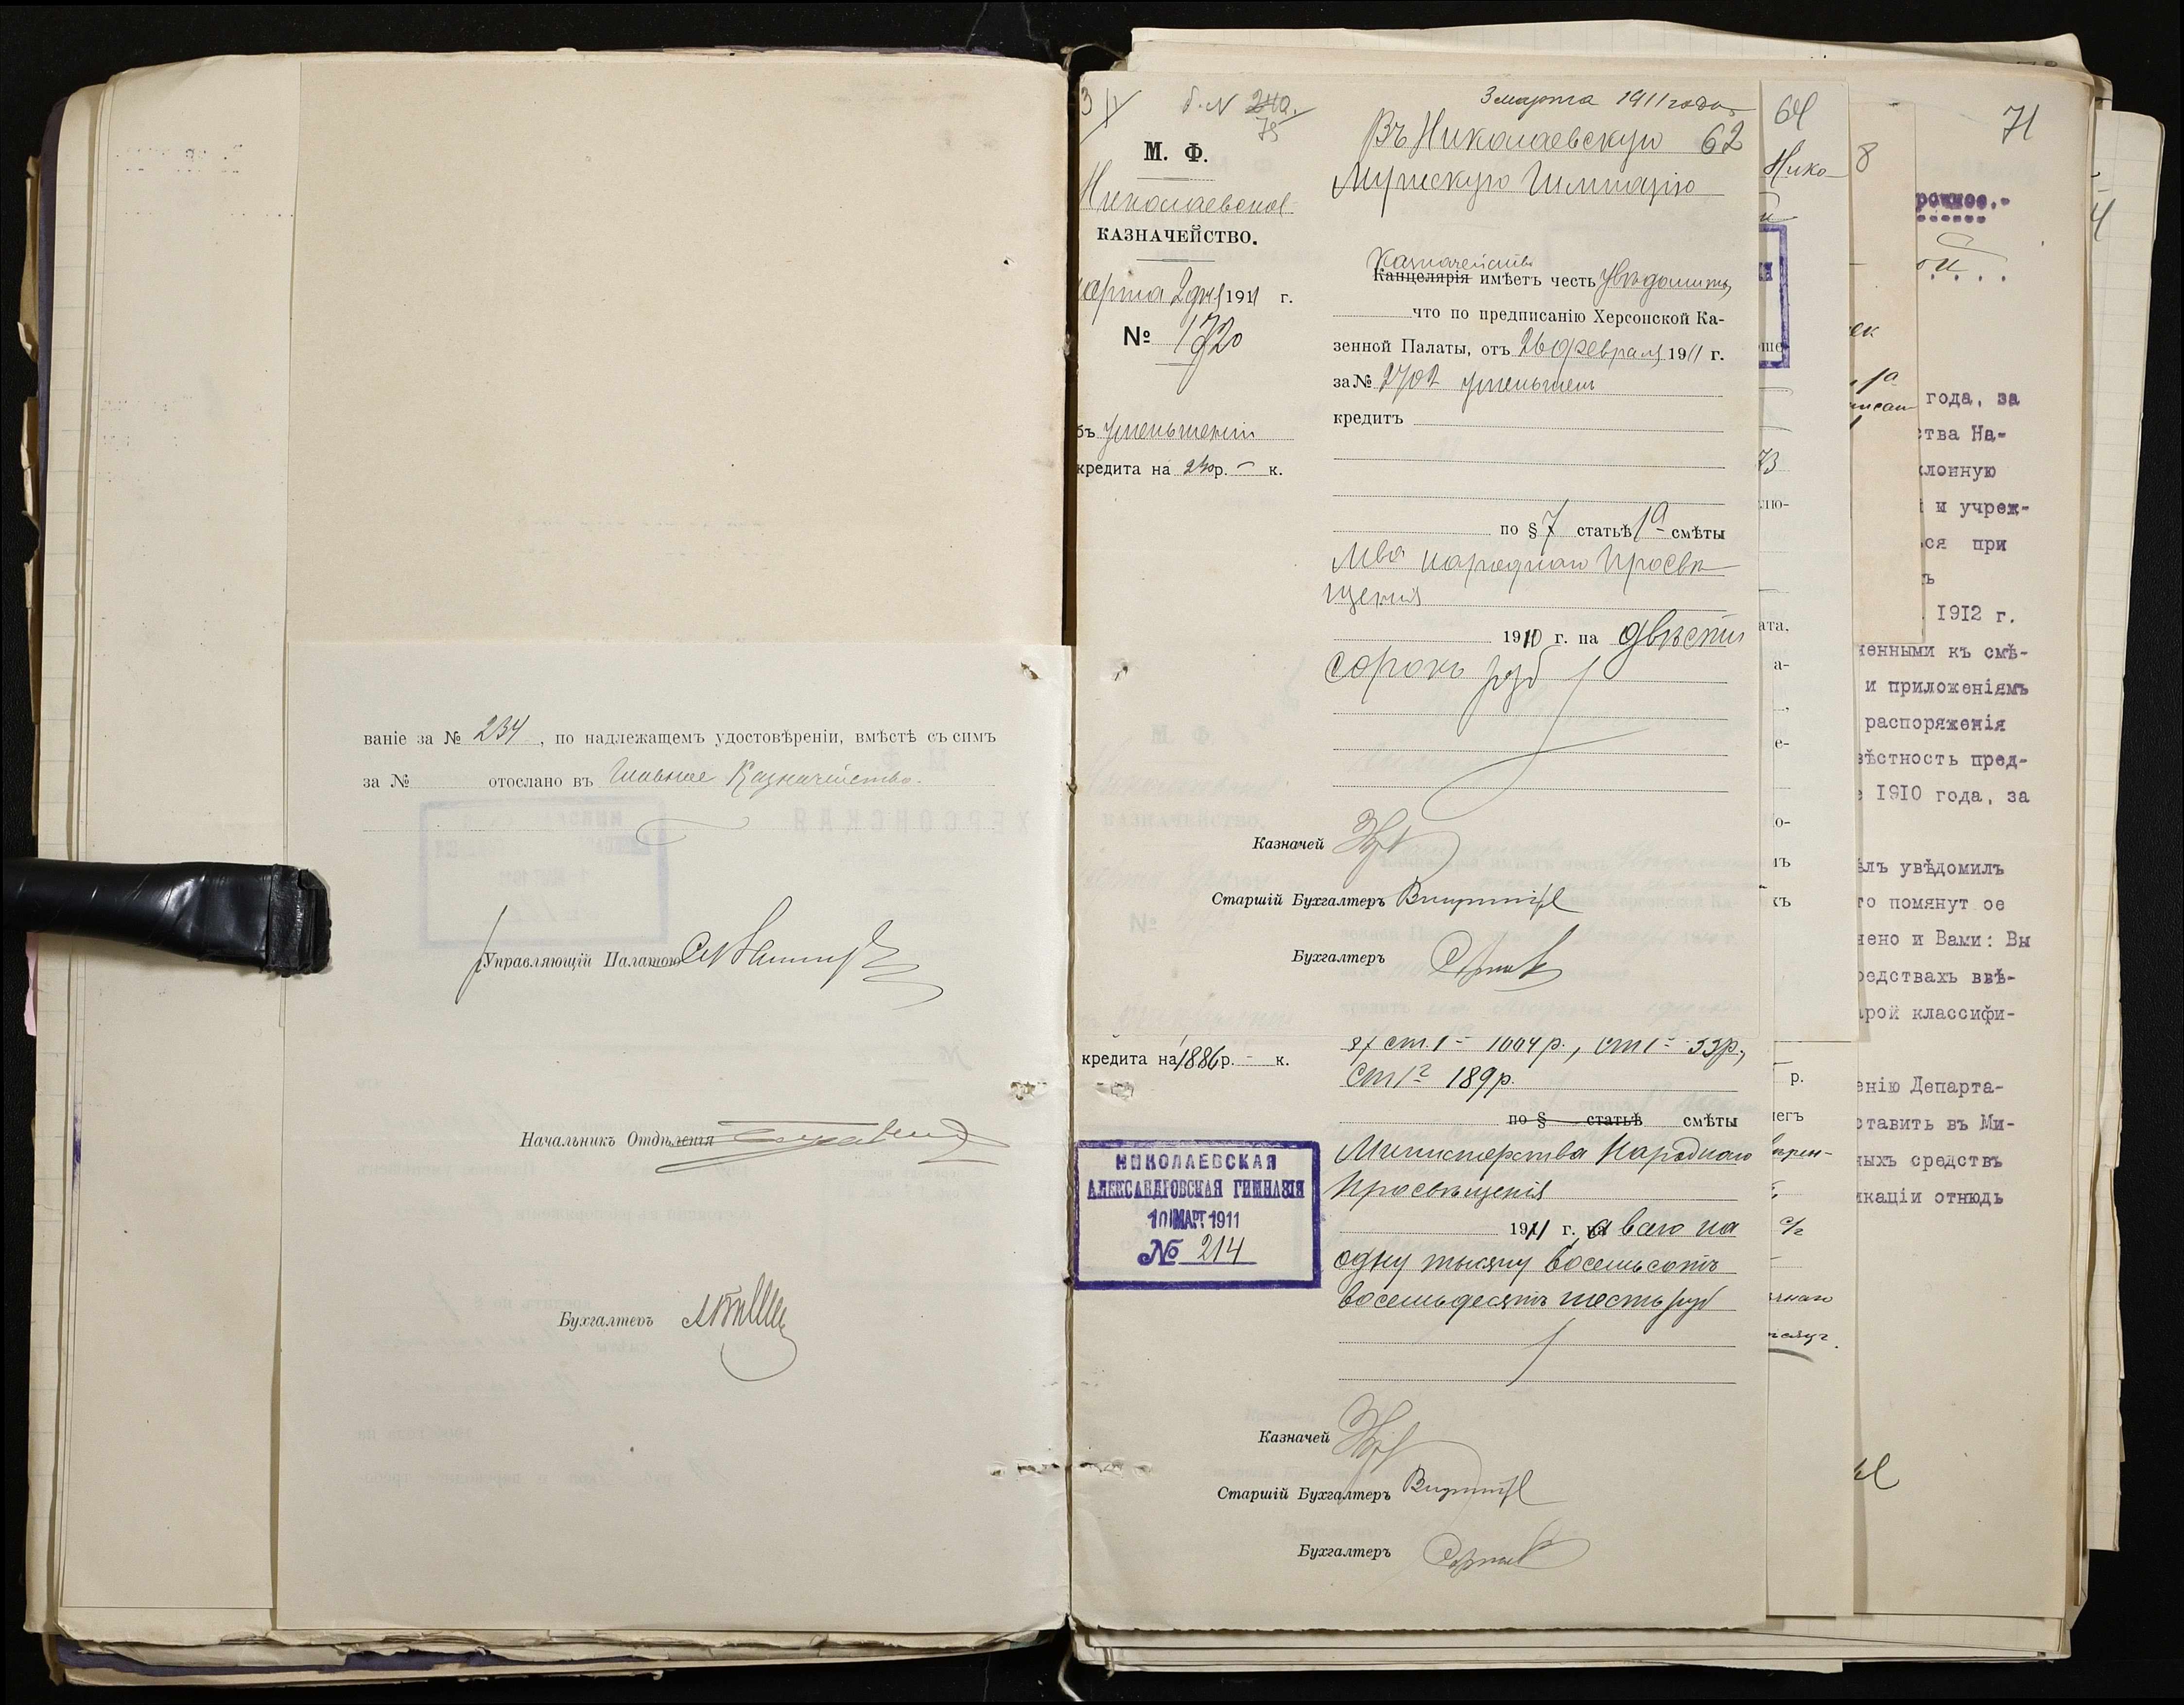 ваніе за № 234, по надлежащемъ удостовѣреніи, вмѣстѣ съ симъ
за № отослано въ Главное Казначейство.
Управляющій Палатою
Начальникъ Отдѣленія
Бухгалтеръ
3 марта 1911 года
62
М. Ф.
Николаевское
КАЗНАЧЕЙСТВО.
марта 2 дня 1911 г.
№ 1720
объ уменьшеніи
кредита на 240 р. — к.
Въ Николаевскую
Мужскую Гимназію
Казначейство
Канцелярія имѣетъ честь увѣдомить,
что по предписанію Херсонской Ка-
зенной Палаты, отъ 26 февраля 1911 г.
за № 2702 уменьшенъ
кредитъ
по § 7 статьѣ 1а смѣты
М-ва народнаго Просвѣ
щенія
1910 г. на двѣсти
сорокъ руб
Казначей
Старшій Бухгалтеръ
Бухгалтеръ
кредита на 1886 р. — к.
ст. 1 1004 р.,
189 р.
по § статьѣ смѣты
Министерства Народнаго
Просвѣщенія
1911 г., а всего на
одну тысячу восемьсотъ
восемьдесятъ шесть руб
НИКОЛАЕВСКАЯ
АЛЕКСАНДРОВСКАЯ ГИМНАЗІЯ
10 МАРТ 1911
№ 214
Казначей
Старшій Бухгалтеръ
Бухгалтеръ
64
Нико
73
р.
8
71
рочное.-
года, за
ства На-
лонную
и учреж-
ся при
1912 г.
женными къ смѣ-
и приложеніямъ
распоряженія
вѣстность пред-
1910 года, за
ѣлъ увѣдомилъ
го помянут ое
нено и Вами: Вы
редствахъ ввѣ-
арой классифи-
енію Департа-
ставить въ Ми-
ныхъ средствъ
икаціи отнюдь